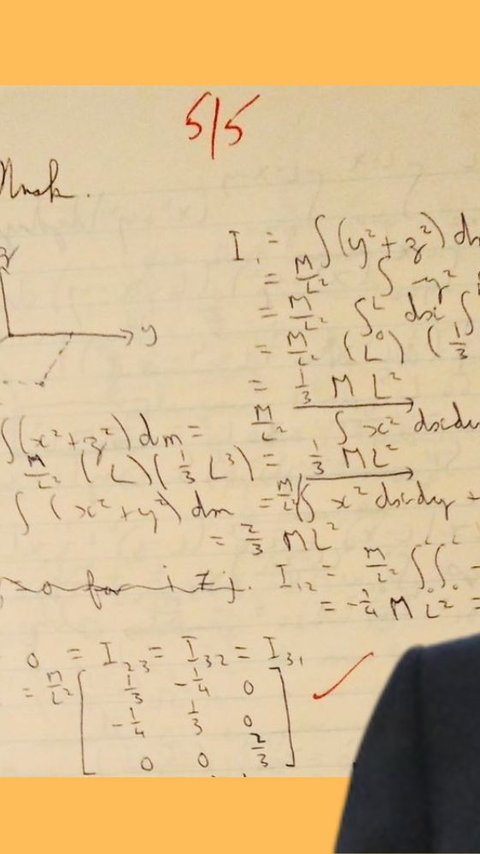 5/5
Musk.
I₁ = ∫(y² + z²) dm
= M/L² ∫ y²
y
= M/L² ∫₀ᴸ dx ∫
= M/L² (L) (1/3
= 1/3 ML²
∫(x² + z²) dm = M/L² ∫ x² dxdy
M/L² (L)(1/3 L³) = 1/3 ML²
∫(x² + y²) dm = M/L² ∫ x² dxdy +
= 2/3 ML²
for i ≠ j. I₁₂ = M/L² ∫₀ᴸ ∫₀ᴸ -
= -1/4 ML² =
0 = I₂₃ = I₃₂ = I₃₁
= M/L² [ 1/3 -1/4 0
-1/4 1/3 0
0 0 2/3 ]